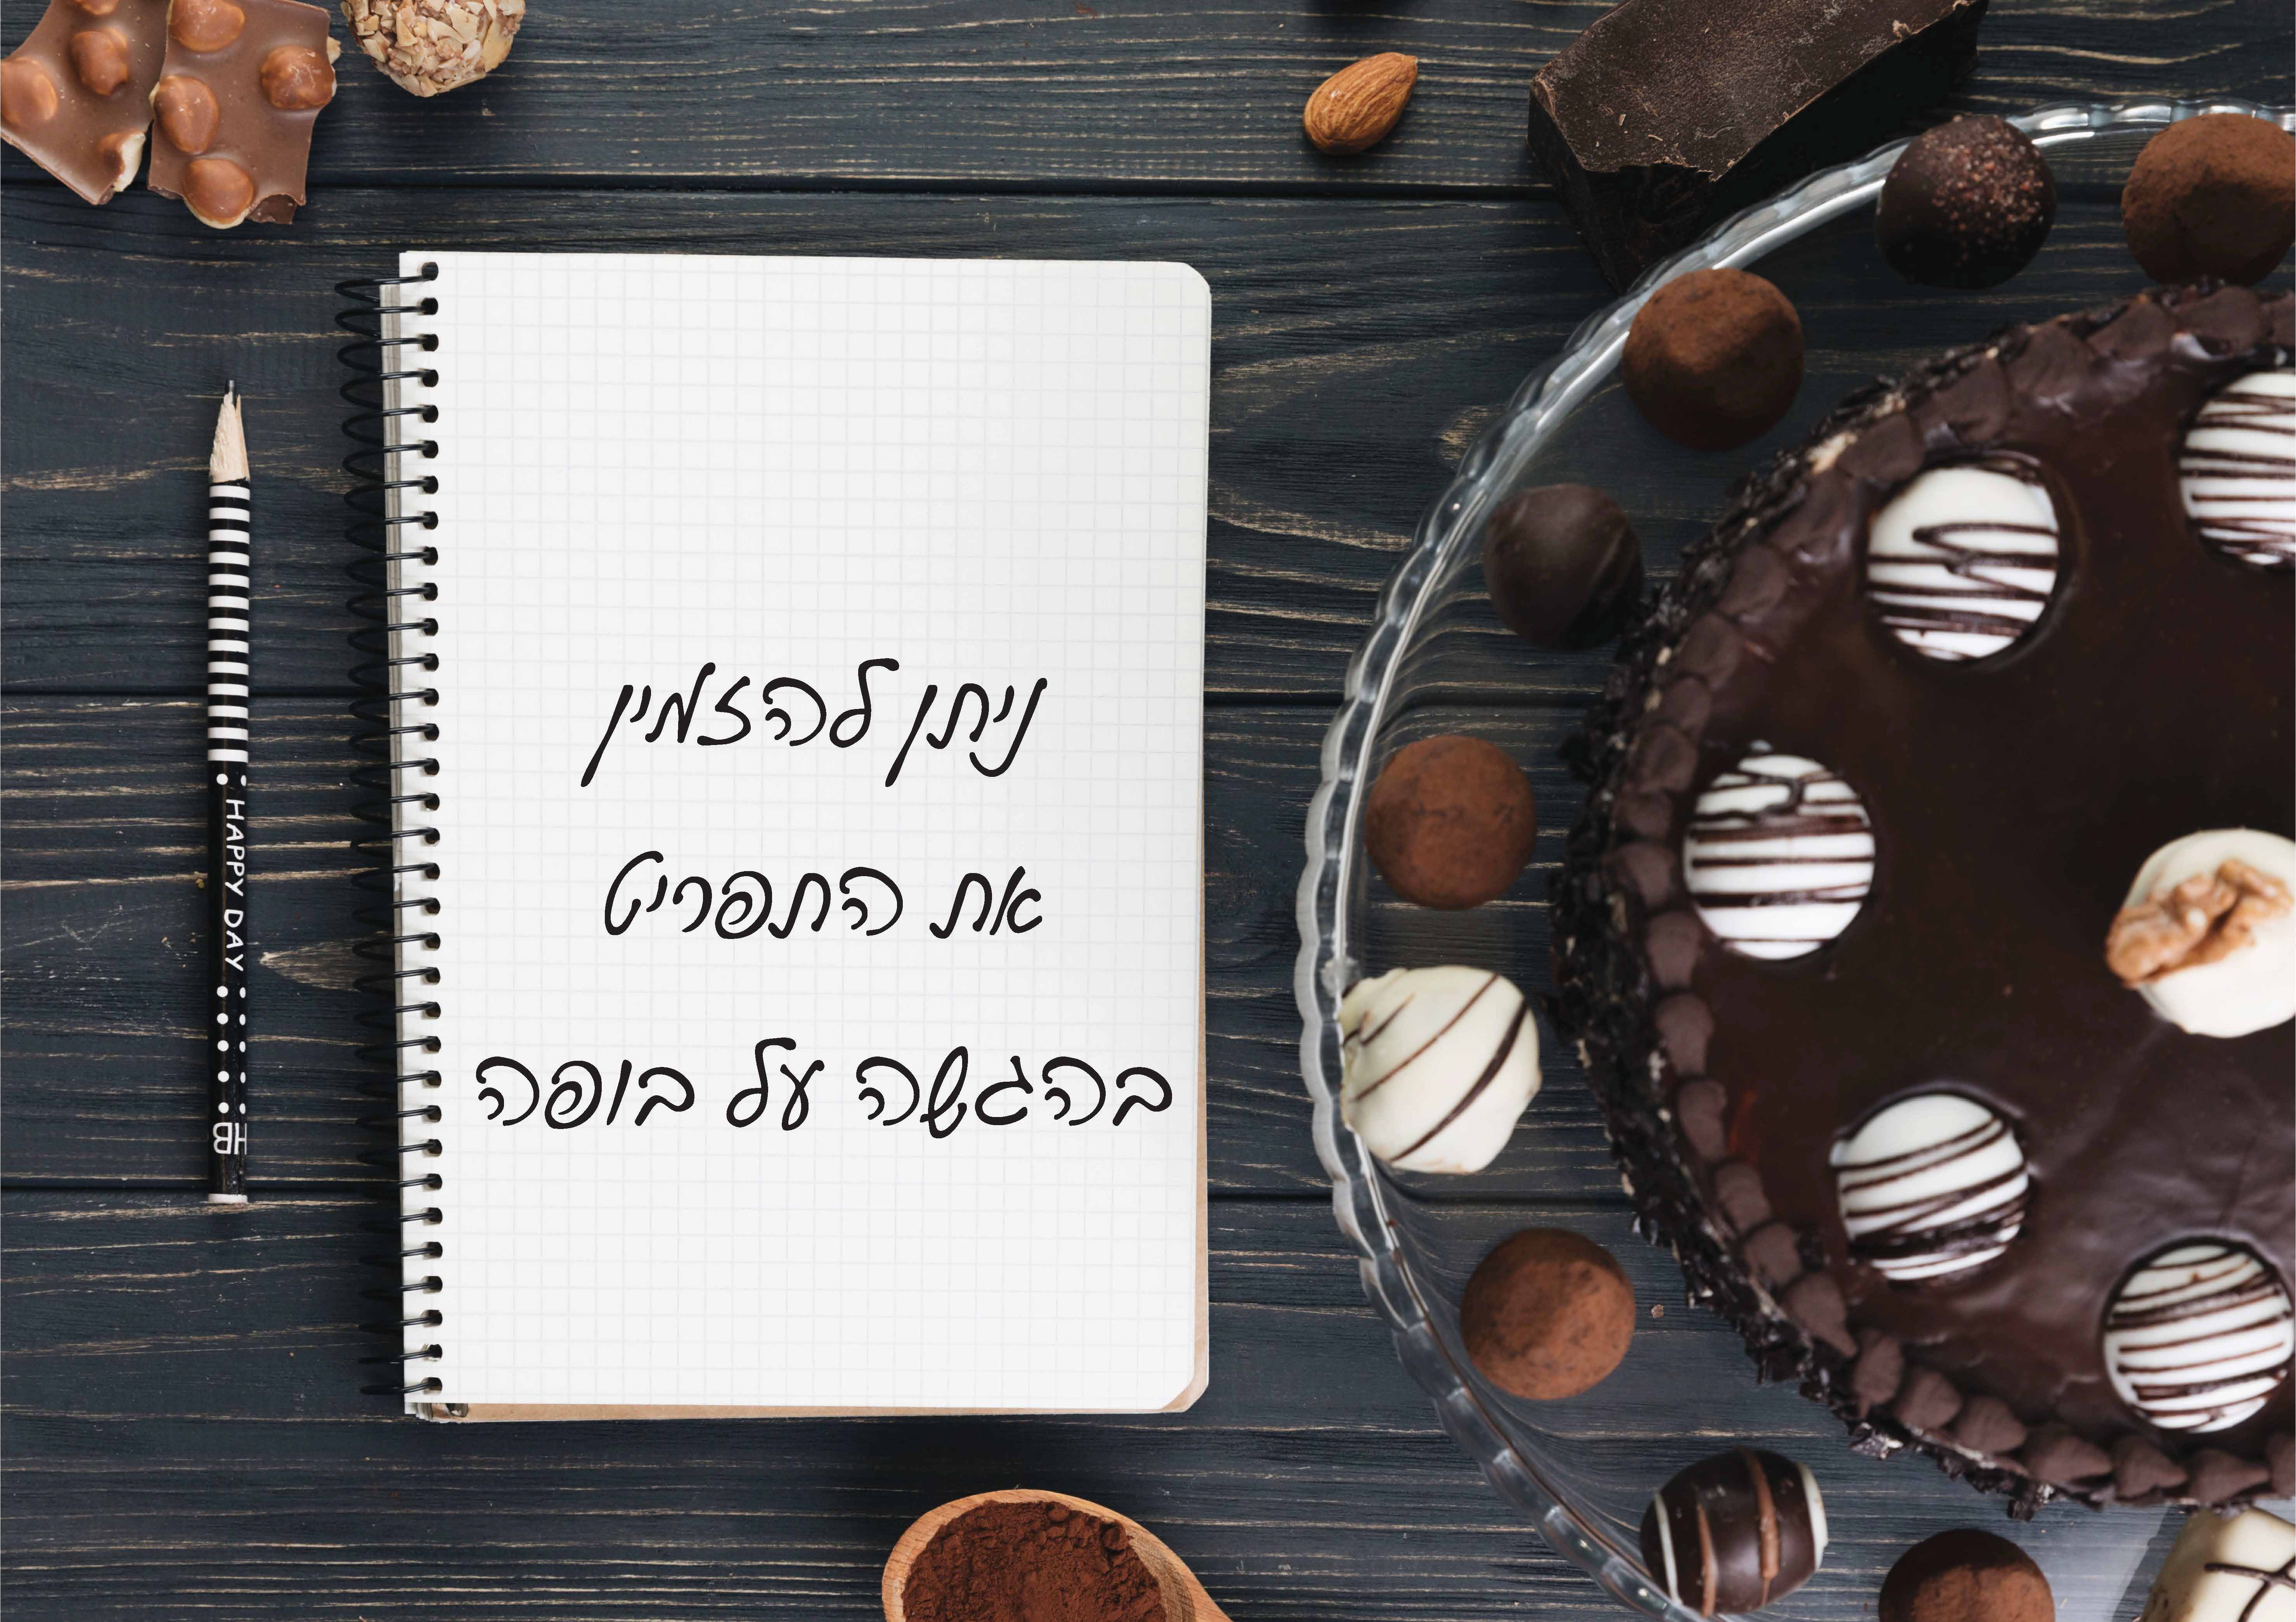 ניתן להזמין
את התפריט
בהגשה על בופה
HAPPY DAY
HB